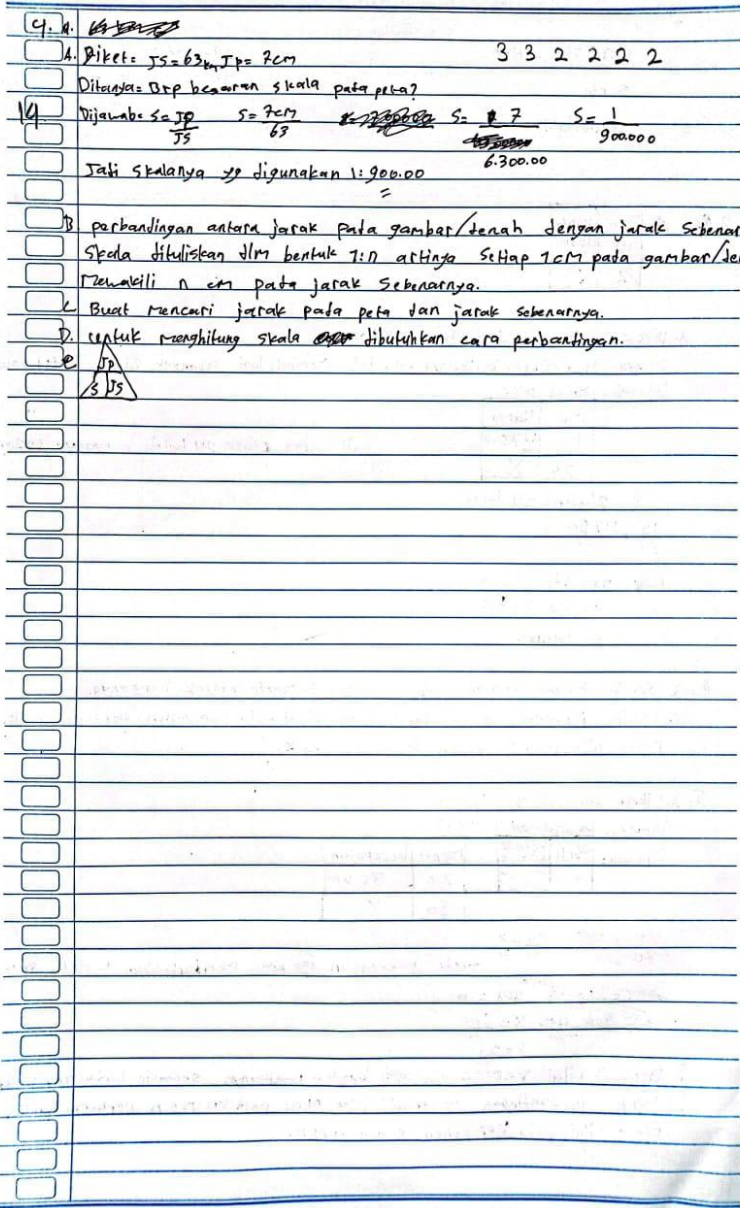 4. A.
A. Diket: JS = 63 km, Jp = 7cm 3 3 2 2 2 2
Ditanya = Brp besaran skala pata peta?
14 Dijawab: S = JP/JS S = 7cm/63 S = 7/6.300.00 S = 1/900.000
Jadi skalanya yg digunakan 1: 900.00
B perbandingan antara jarak pata gambar/denah dengan jarak sebenar
Skala dituliskan dlm bentuk 1:n artinya setiap 1cm pada gambar/de
mewakili n cm pata jarak sebenarnya.
C Buat mencari jarak pada peta dan jarak sebenarnya.
D. untuk menghitung skala dibutuhkan cara perbandingan.
e JP
S JS